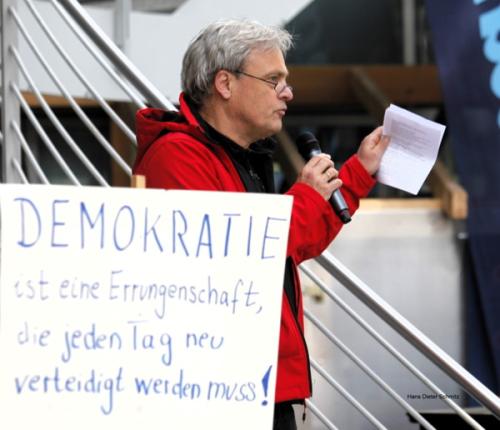 DEMOKRATIE
ist eine Errungenschaft,
die jeden Tag neu
verteidigt werden muss!
Hans Dieter Schmitz